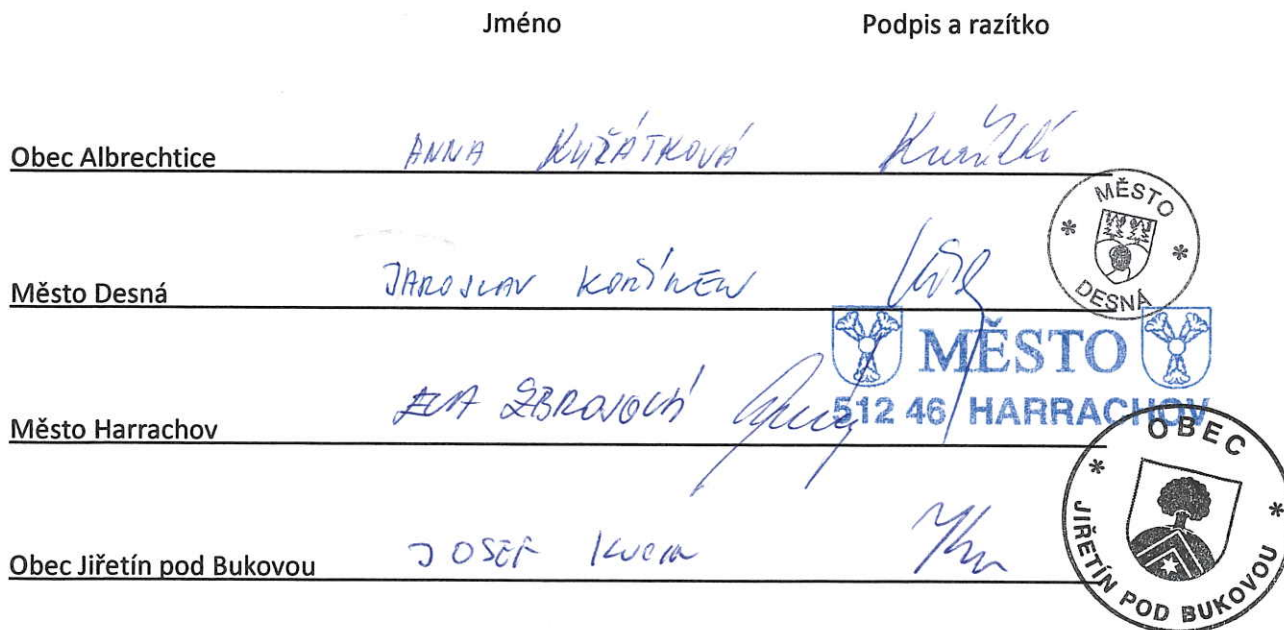 Jméno Podpis a razítko
Obec Albrechtice ANNA KUŽÁTKOVÁ
MĚSTO DESNÁ
Město Desná JAROSLAV KOŘÍNEK
MĚSTO
512 46 HARRACHOV
Město Harrachov EVA ZBROJOVÁ
OBEC JIŘETÍN POD BUKOVOU
Obec Jiřetín pod Bukovou JOSEF